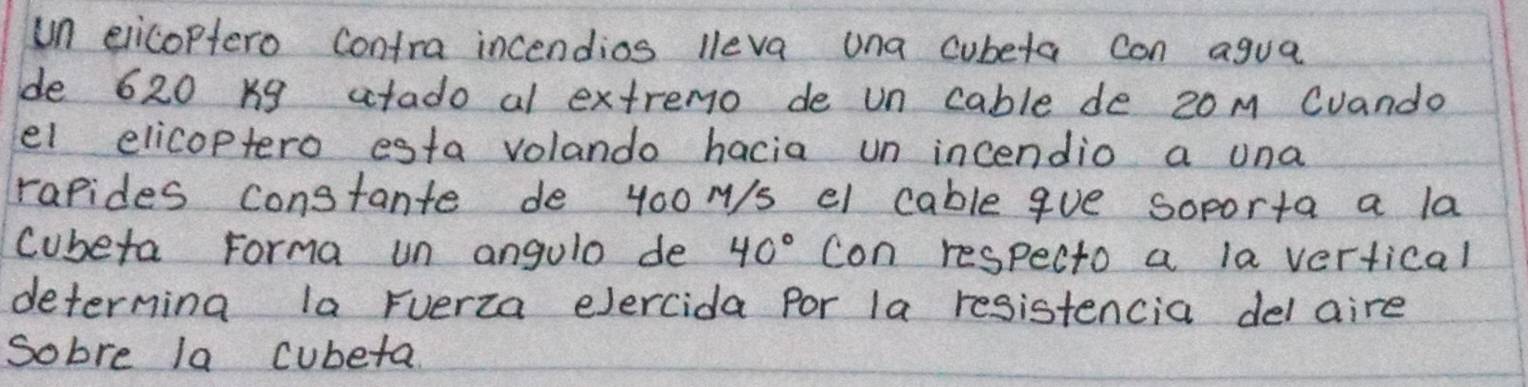 un elicoptero contra incendios lleva una cubeta con agua
de 620 kg atado al extremo de un cable de 20 M Cuando
el elicoptero esta volando hacia un incendio a una
rapides constante de 400 M/s el cable que soporta a la
cubeta Forma un angulo de 40° Con respecto a la vertical
determina la Fuerza ejercida Por la resistencia del aire
Sobre la cubeta.